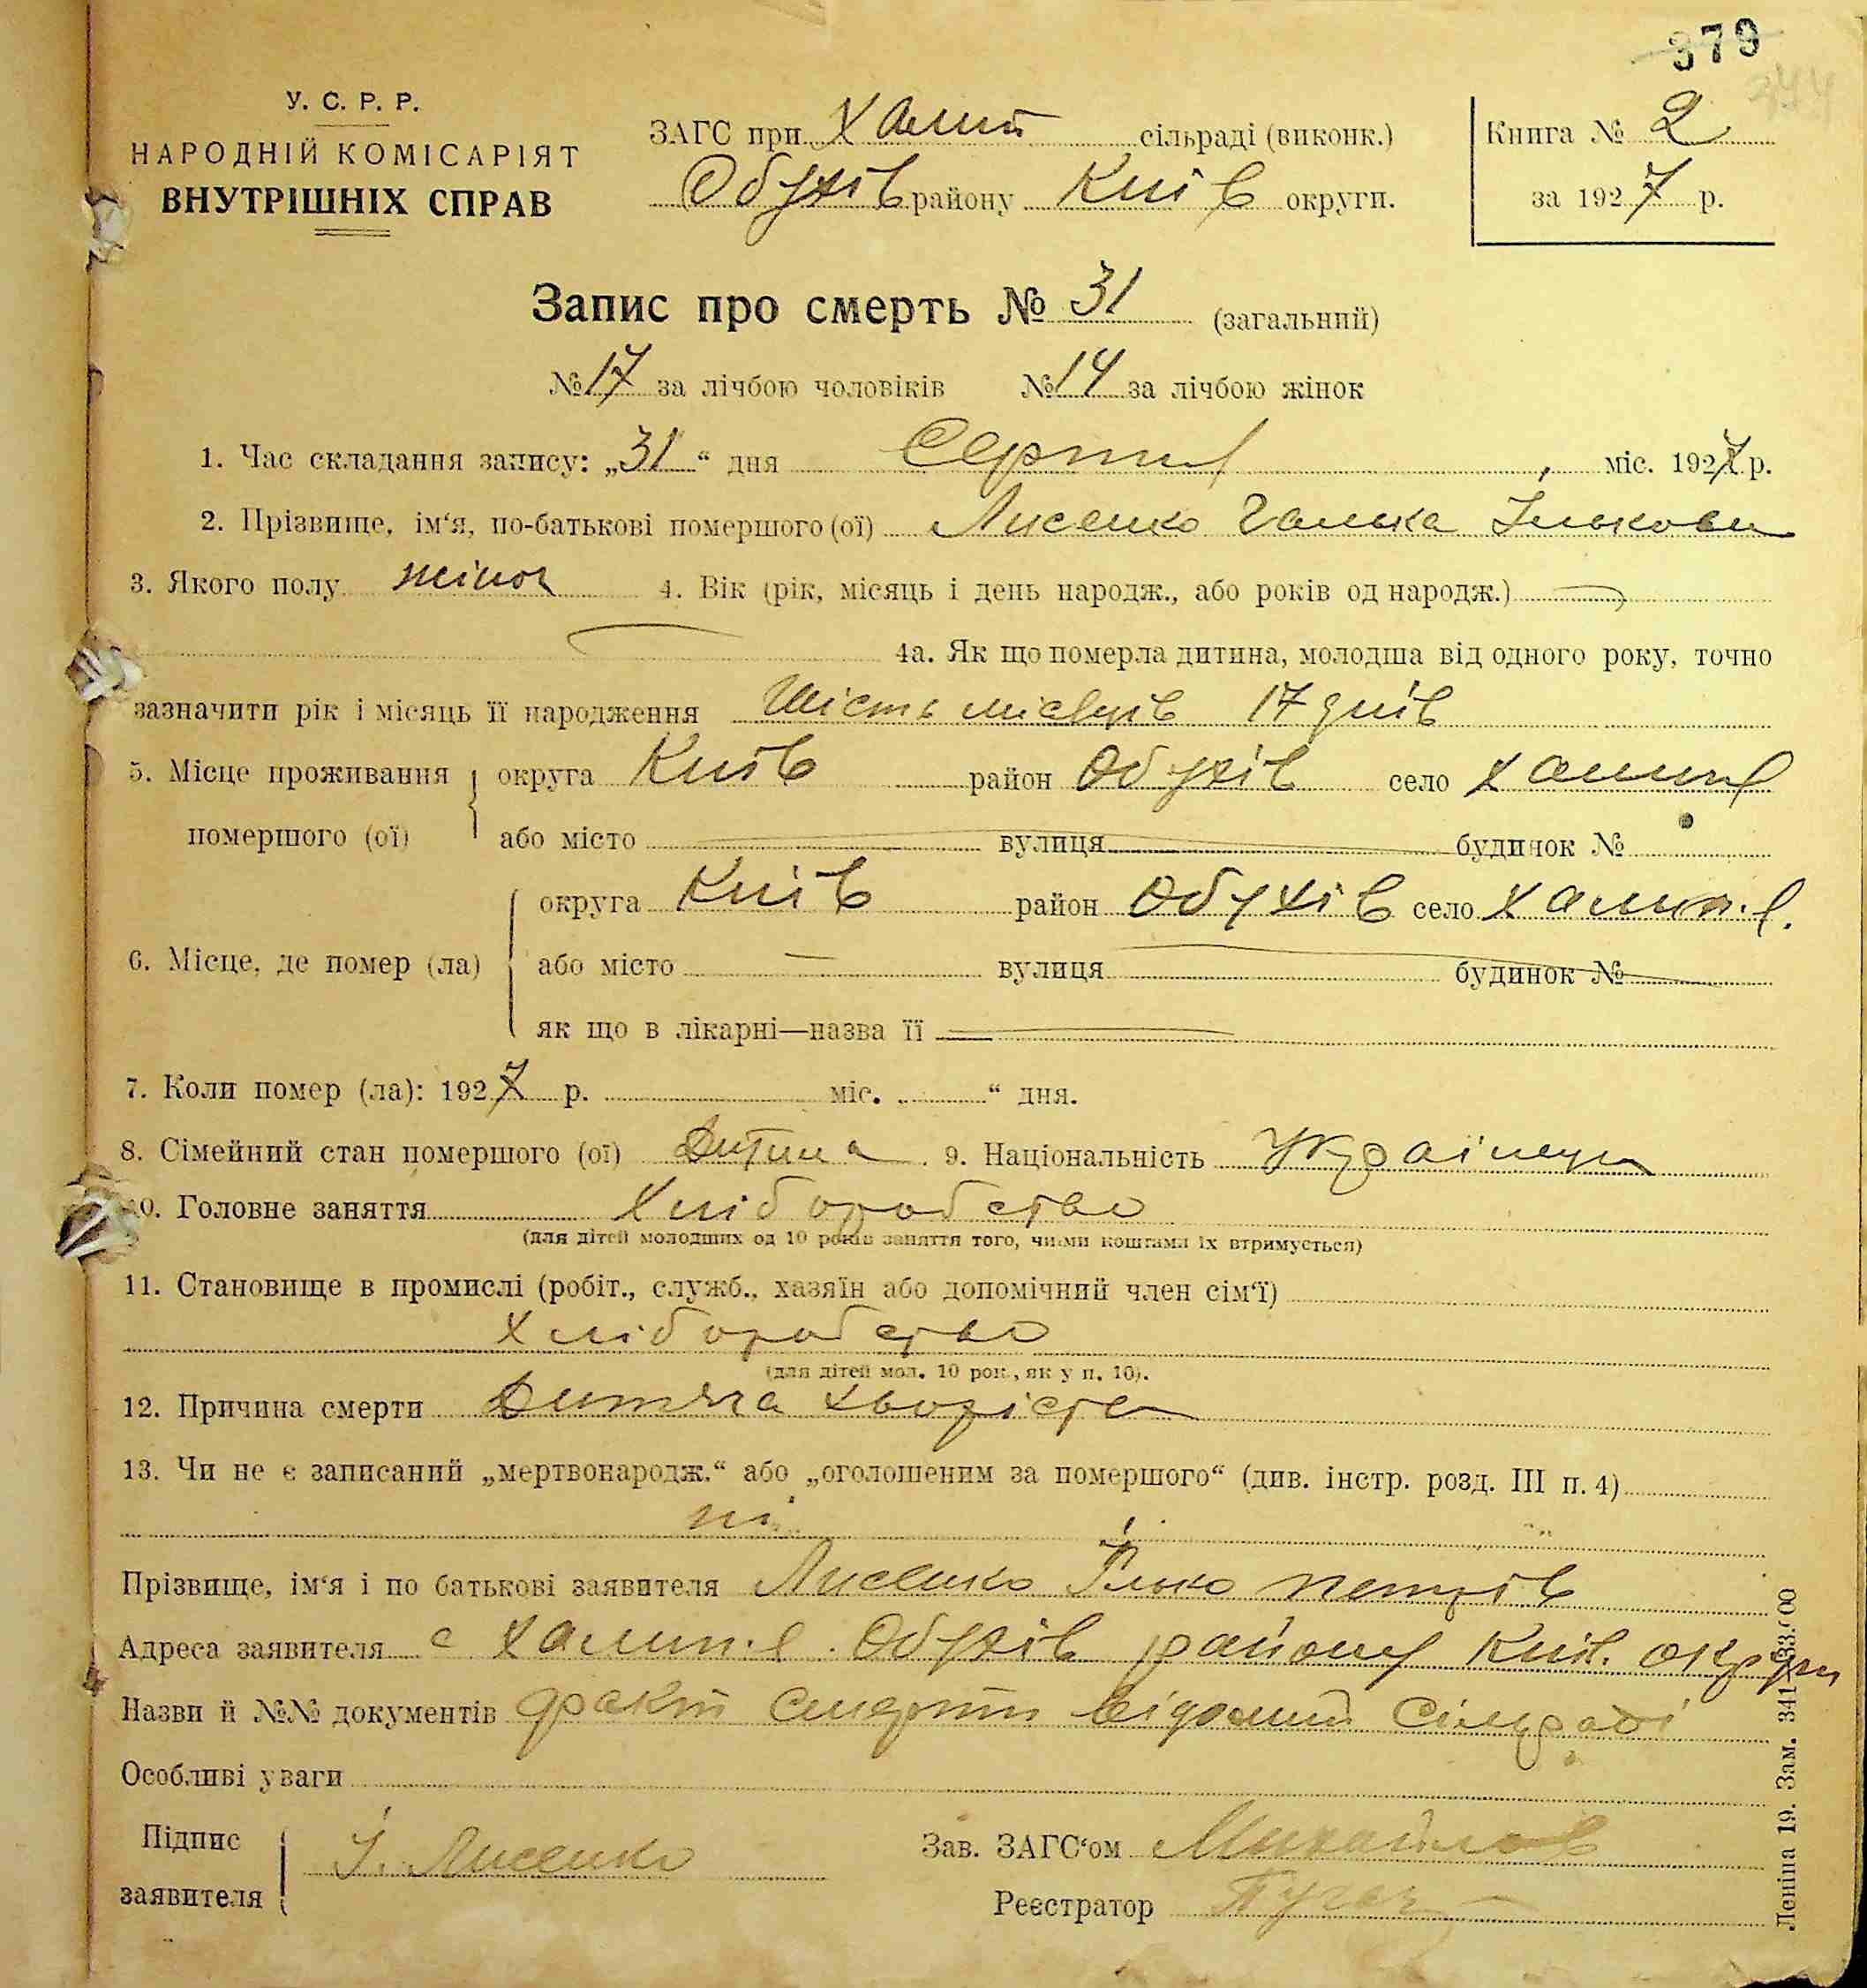 379
344
У. С. Р. Р.
НАРОДНІЙ КОМІСАРІЯТ
ВНУТРІШНІХ СПРАВ
ЗАГС при Халип сільраді (виконк.)
Обухів району Киів округи.
Книга № 2
за 1927 р.
Запис про смерть № 31 (загальний)
№ 17 за лічбою чоловіків № 14 за лічбою жінок
1. Час складання запису: „31“ дня Серпня міс. 1927 р.
2. Прізвище, ім‘я, по-батькові помершого (ої) Лисенко Галька Ількова
3. Якого полу жіноч 4. Вік (рік, місяць і день народж., або років од народж.)
4а. Як що померла дитина, молодша від одного року, точно
зазначити рік і місяць її народження Шість місяців 17 днів
5. Місце проживання помершого (ої) округа Київ район Обухів село Халипя
або місто вулиця будинок №
6. Місце, де помер (ла) округа Киів район Обухів село Халип.я.
або місто вулиця будинок №
як що в лікарні—назва її
7. Коли помер (ла): 1927 р. міс. „ “ дня.
8. Сімейний стан помершого (ої) Дитина 9. Національність Українка
10. Головне заняття Хліборобство
(для дітей молодших од 10 років заняття того, чиїми коштами їх втримується)
11. Становище в промислі (робіт., служб., хазяїн або допомічний член сім‘ї)
Хліборобство
(для дітей мол. 10 рок., як у п. 10).
12. Причина смерти Дитяча хворіста
13. Чи не є записаний „мертвонародж.“ або „оголошеним за помершого“ (див. інстр. розд. III п. 4)
ні
Прізвище, ім‘я і по батькові заявителя Лисенко Ілько Петрів
Адреса заявителя с Халип.я. Обухів району Київ. округи
Назви й №№ документів факт смерти відомий Сільраді
Особливі уваги
Підпис заявителя І. Лисенко
Зав. ЗАГС‘ом Михайлов
Реєстратор
Леніна 19. Зам. 341—33.000